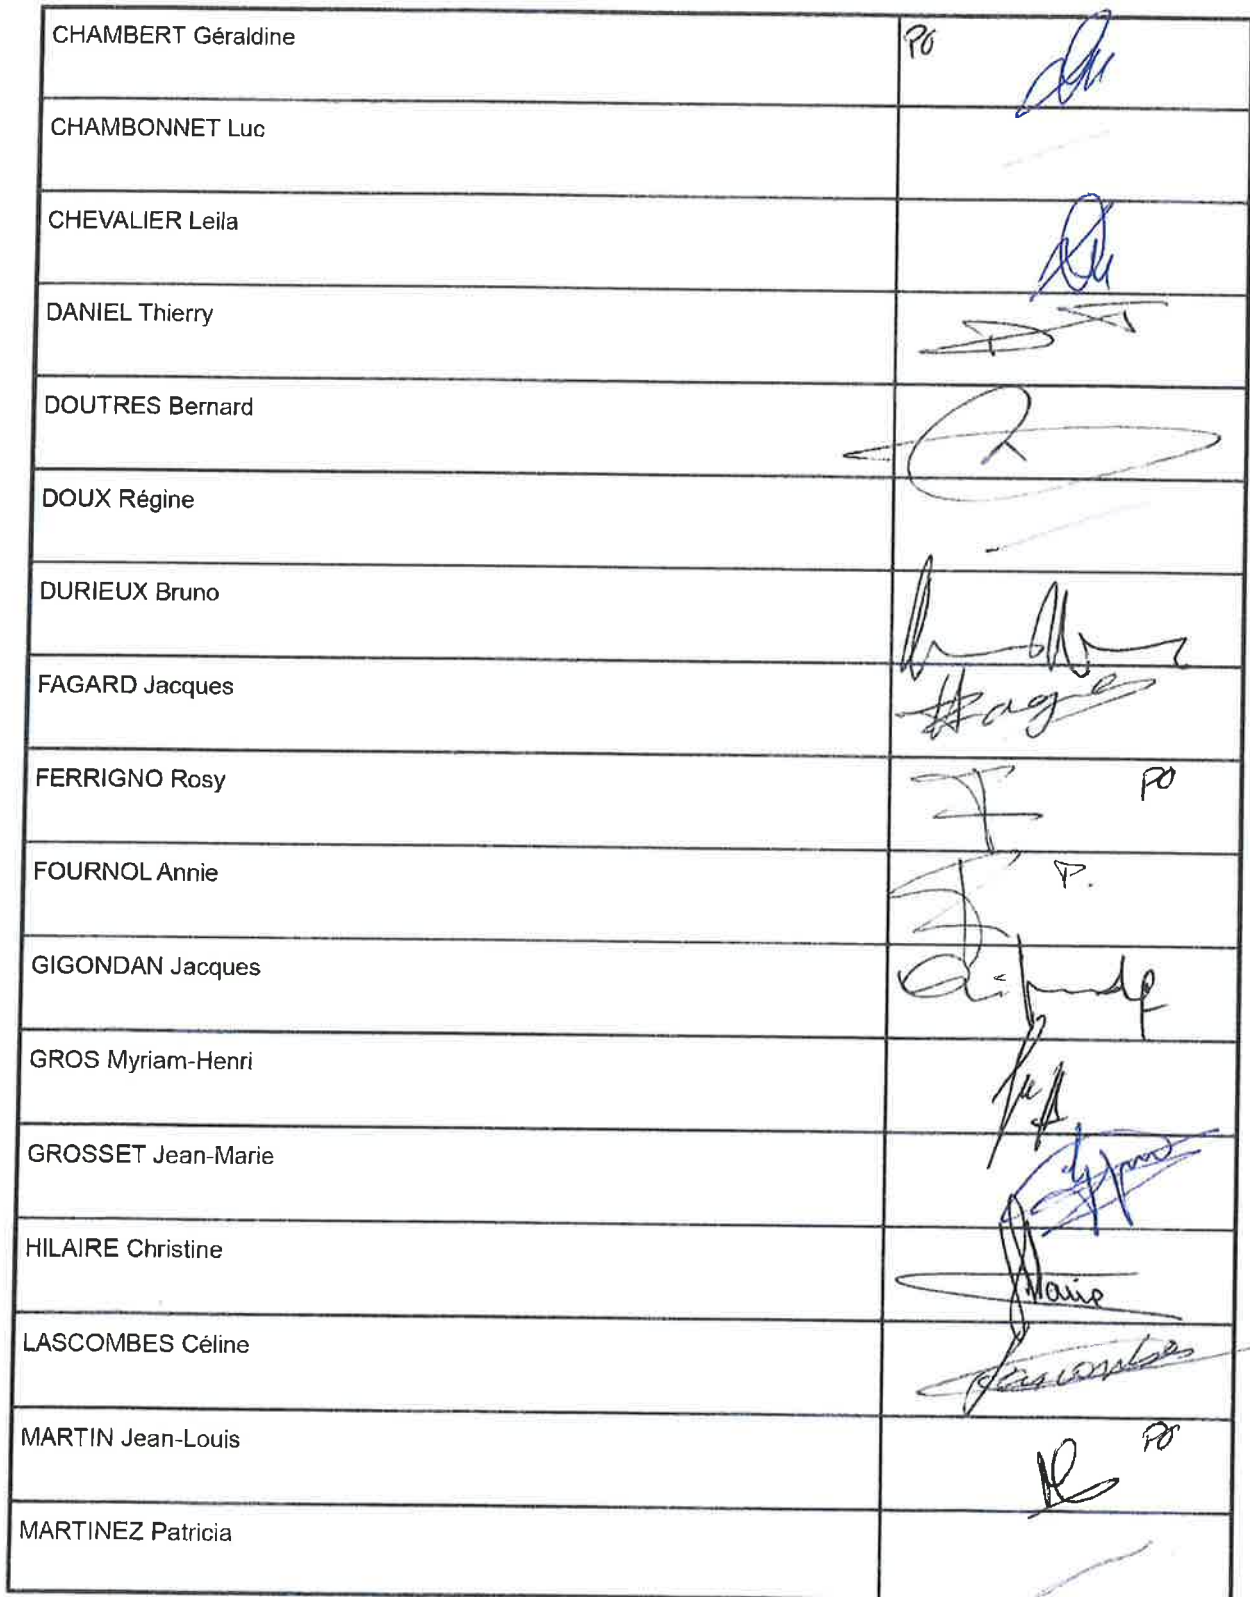 CHAMBERT Géraldine PO
CHAMBONNET Luc
CHEVALIER Leila
DANIEL Thierry
DOUTRES Bernard
DOUX Régine
DURIEUX Bruno
FAGARD Jacques
FERRIGNO Rosy PO
FOURNOL Annie P.
GIGONDAN Jacques
GROS Myriam-Henri
GROSSET Jean-Marie
HILAIRE Christine
LASCOMBES Céline Lascombes
MARTIN Jean-Louis PO
MARTINEZ Patricia